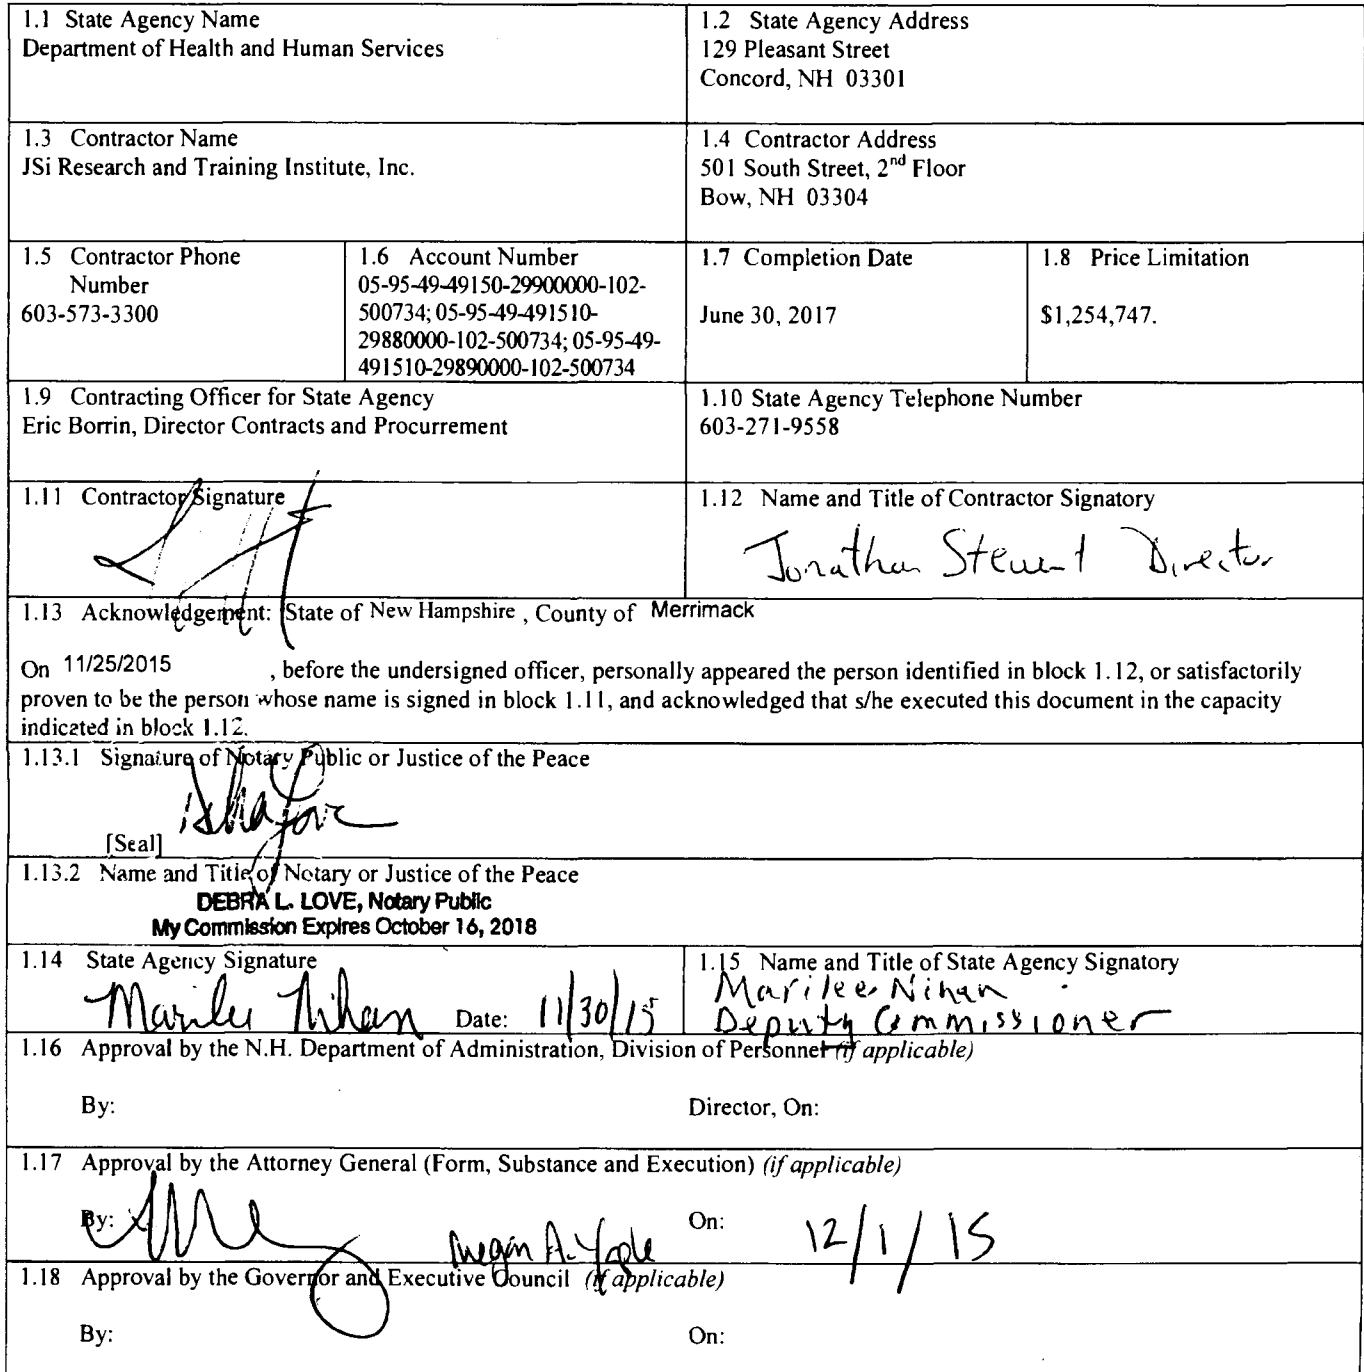 1.1 State Agency Name
Department of Health and Human Services
1.2 State Agency Address
129 Pleasant Street
Concord, NH 03301
1.3 Contractor Name
JSi Research and Training Institute, Inc.
1.4 Contractor Address
501 South Street, 2nd Floor
Bow, NH 03304
1.5 Contractor Phone
Number
603-573-3300
1.6 Account Number
05-95-49-49150-29900000-102-
500734; 05-95-49-491510-
29880000-102-500734; 05-95-49-
491510-29890000-102-500734
1.7 Completion Date
June 30, 2017
1.8 Price Limitation
$1,254,747.
1.9 Contracting Officer for State Agency
Eric Borrin, Director Contracts and Procurrement
1.10 State Agency Telephone Number
603-271-9558
1.11 Contractor Signature
1.12 Name and Title of Contractor Signatory
Jonathan Stewart Director
1.13 Acknowledgement: State of New Hampshire , County of Merrimack
On 11/25/2015 , before the undersigned officer, personally appeared the person identified in block 1.12, or satisfactorily
proven to be the person whose name is signed in block 1.11, and acknowledged that s/he executed this document in the capacity
indicated in block 1.12.
1.13.1 Signature of Notary Public or Justice of the Peace
[Seal]
1.13.2 Name and Title of Notary or Justice of the Peace
DEBRA L. LOVE, Notary Public
My Commission Expires October 16, 2018
1.14 State Agency Signature
Marilee Nihan Date: 11/30/15
1.15 Name and Title of State Agency Signatory
Marilee Nihan
Deputy Commissioner
1.16 Approval by the N.H. Department of Administration, Division of Personnel (if applicable)
By: Director, On:
1.17 Approval by the Attorney General (Form, Substance and Execution) (if applicable)
By: Megan A. Yaple On: 12/1/15
1.18 Approval by the Governor and Executive Council (if applicable)
By: On: